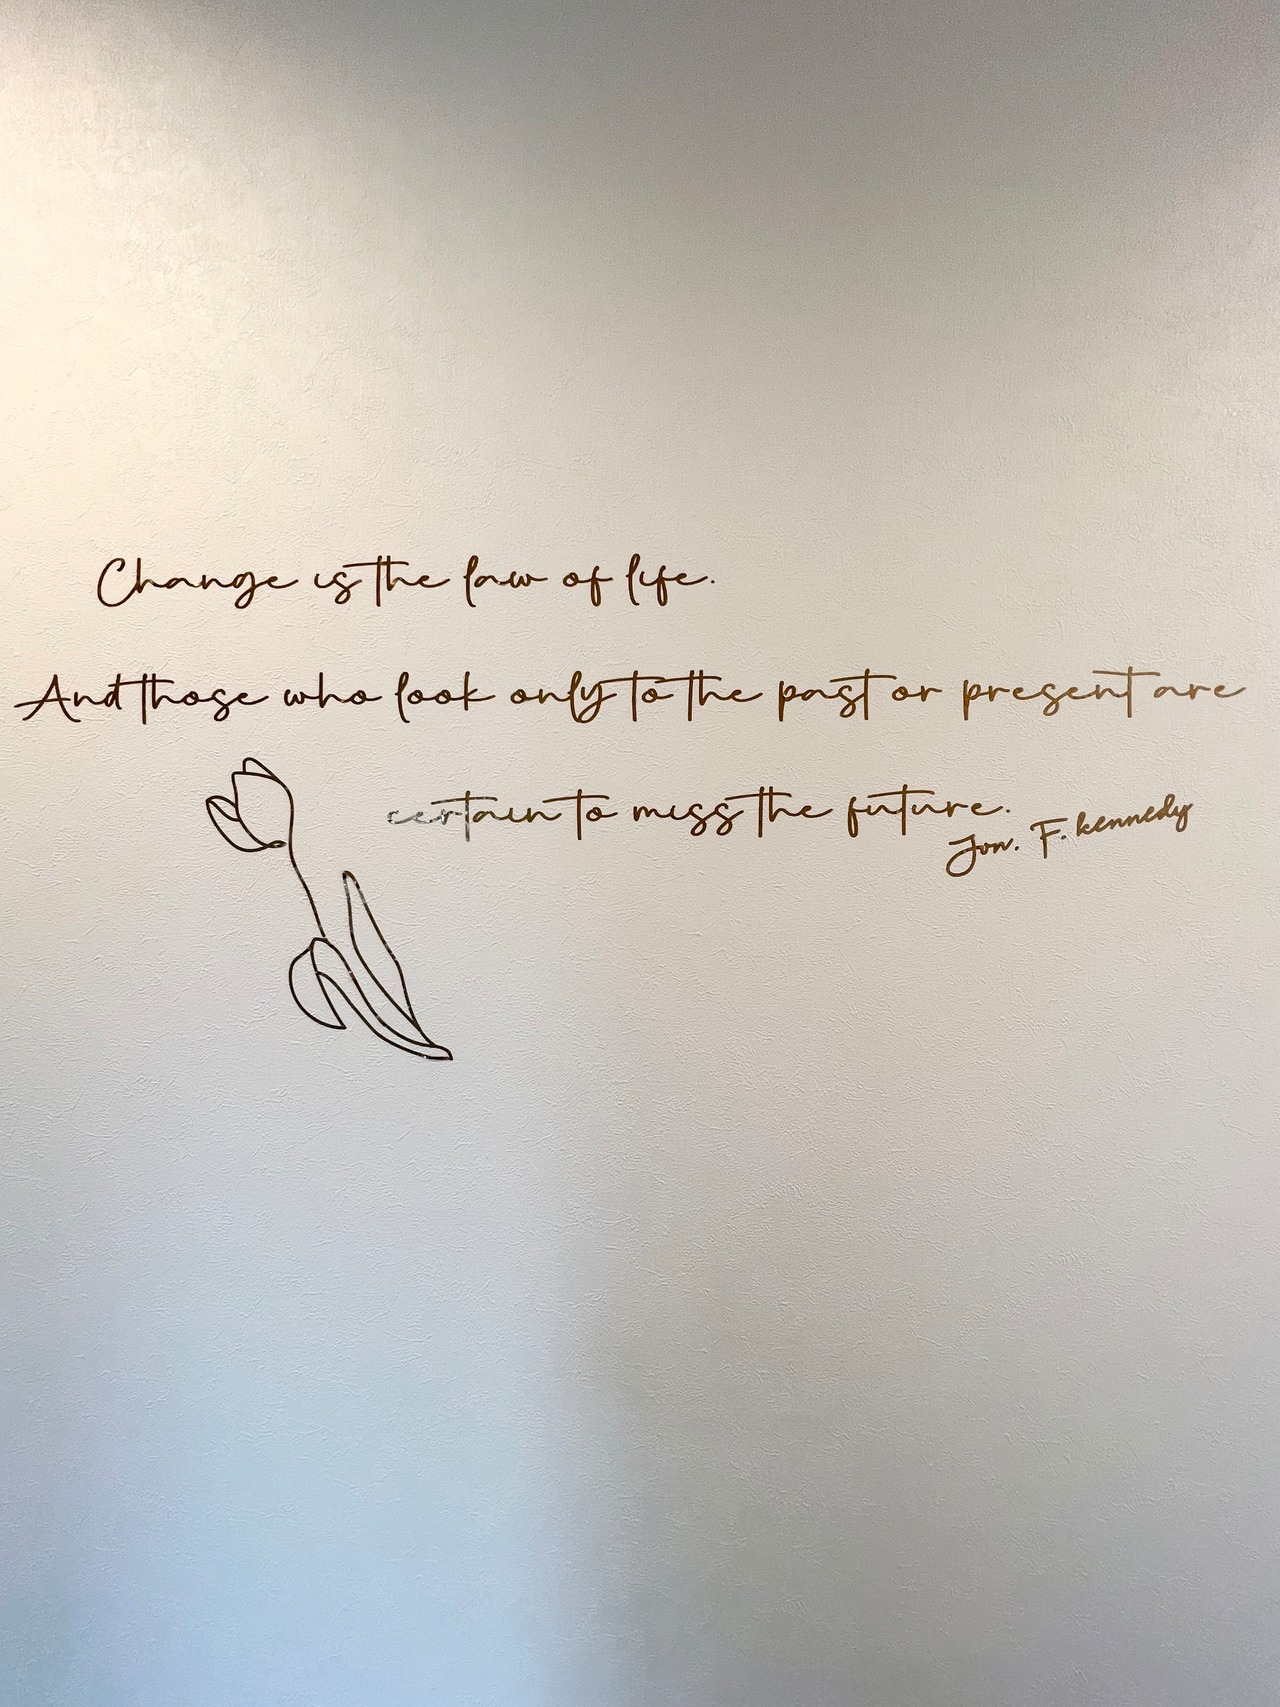 Change is the law of life.
And those who look only to the past or present are
certain to miss the future.
Jon. F. kennedy